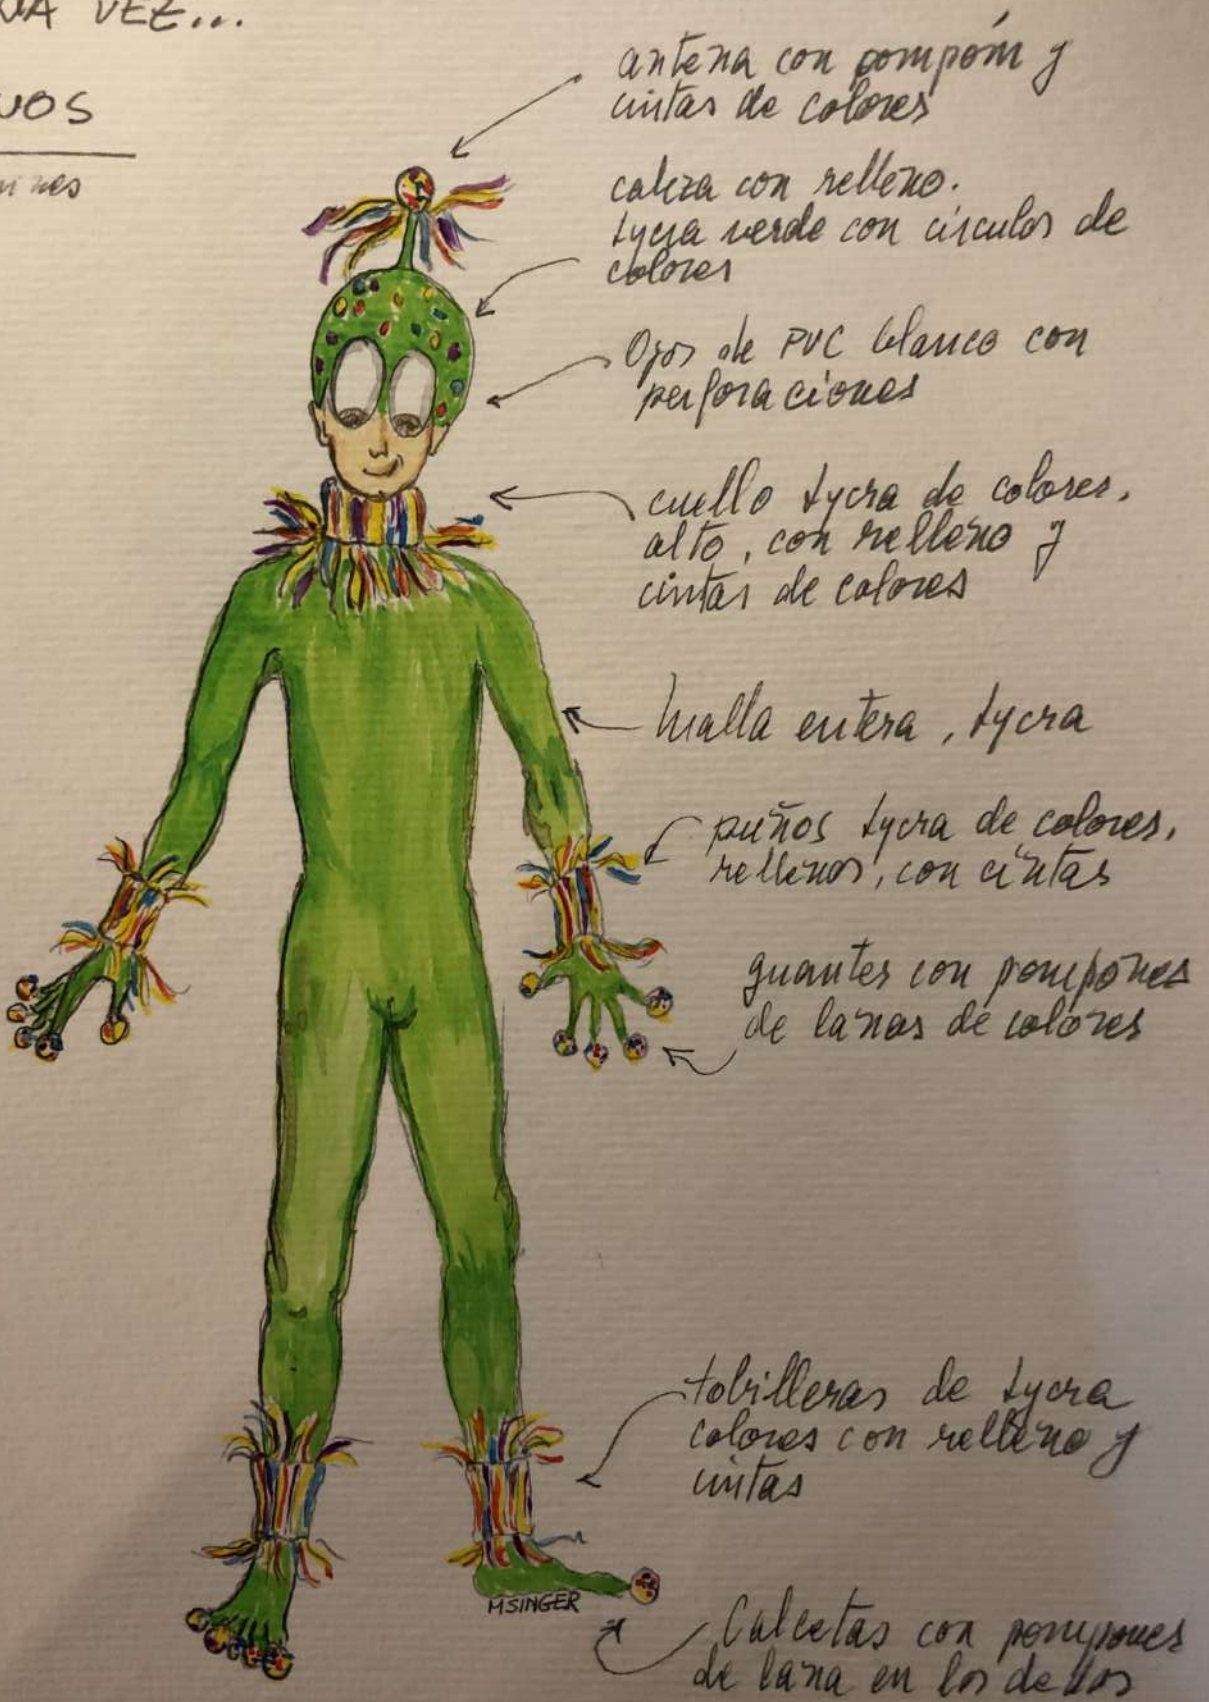 VEZ...
antena con pompóm y
cintas de colores
cabeza con relleno.
Lycra verde con círculos de
colores
Ojos de PVC blanco con
perforaciones
cuello Lycra de colores,
alto, con relleno y
cintas de colores
malla entera, Lycra
puños Lycra de colores,
rellenos, con cintas
guantes con pompones
de lanas de colores
tobilleras de Lycra
colores con relleno y
cintas
MSINGER
Calcetas con pompones
de lana en los dedos